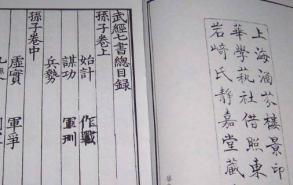 上海涵芬樓景印
華學藝社借照東
岩崎氏靜嘉堂藏
武經七書總目錄
孫子卷上
始計
作戰
謀功
軍形
兵勢
孫子卷中
虛實
軍爭